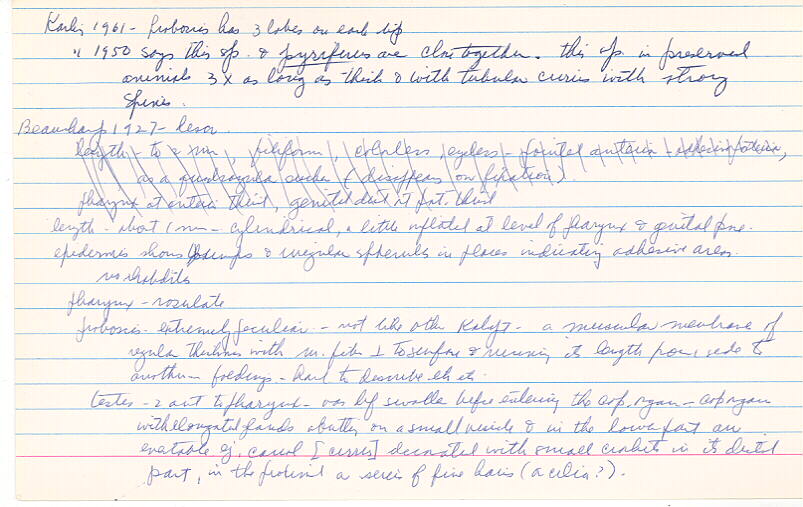 Karling 1961 - proboscis has 3 lobes on each lip
" 1950 says this sp. & pyriferus are close together. this sp. in preserved
animals 3x as long as thick & with tubular cirrus with strong
spines.
Beauchamp 1927 - descr.
length - to 2 mm, filiform, colorless, eyeless - pointed anterior + adhesive posterior,
as a quadrangular sucker (disappears on fixation)
pharynx at anterior third, genital duct at post. third
length - about 1 mm - cylindrical, a little inflated at level of pharynx & genital pore.
epidermis shows clumps & irregular spherules in places indicating adhesive areas.
no rhabdites
pharynx - rosulate
proboscis - extremely peculiar - not like other Kalypt. - a muscular membrane of
regular thickness with m. fibers ⊥ to surface & running its length from 1 side to
another - foldings - hard to describe etc etc.
testes - 2 ant to pharynx - vas def swollen before entering the cop. organ - cop organ
with elongated glands on a small vesicle & in the lower part an
evertable ej. canal [cirrus] decorated with small crochets in its distal
part, in the proximal a series of fine hairs (or cilia?).